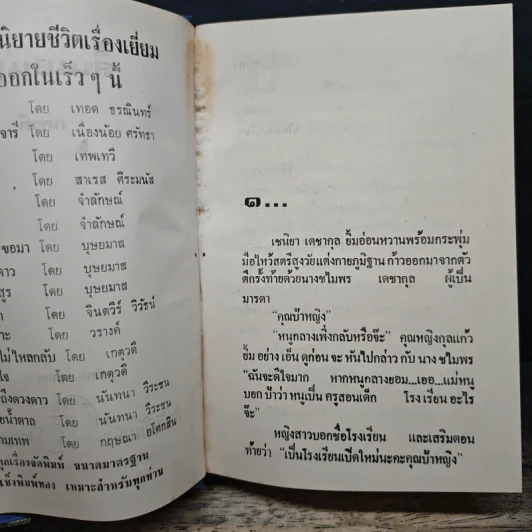 นิยายชีวิตเรื่องเยี่ยม
ออกในเร็ว ๆ นี้
โดย เทอด ธรณินทร์
จารี โดย เนื่องน้อย ศรัทธา
โดย เทพเทวี
โดย สาเรส ศิระมนัส
โดย จำลักษณ์
โดย จำลักษณ์
ขอมา โดย บุษยมาส
ดาว โดย บุษยมาส
สูร โดย บุษยมาส
โดย จินตวีร์ วิวัธน์
าะ โดย วรางค์
ไม่ไหลกลับ โดย เกตุวดี
ใจ โดย เกตุวดี
ถึงดวงดาว โดย นันทนา วีระชน
ยน้ำตาล โดย นันทนา วีระชน
ามเทพ โดย กฤษณา อโศกสิน
ทุกเรื่องจัดพิมพ์ ขนาดมาตรฐาน
แข็งพิมพ์ทอง เหมาะสำหรับทุกท่าน
๑...
เชนิยา เดชากุล ยิ้มอ่อนหวานพร้อมกระพุ่ม
มือไหว้สตรีสูงวัยแต่งกายภูมิฐาน ก้าวออกมาจากตัว
ตึกรั้งท้ายด้วยนางชไมพร เดชากุล ผู้เป็น
มารดา
“คุณป้าหญิง”
“หนูกลางเพิ่งกลับหรือจ๊ะ” คุณหญิงกุลแก้ว
ยิ้ม อย่าง เอ็น ดูก่อน จะ หันไปกล่าว กับ นาง ชไมพร
“ฉันจะดีใจมาก หากหนูกลางยอม...เออ...แม่หนู
บอก ป้าว่า หนูเป็น ครูสอนเด็ก โรงเรียน อะไร
จ๊ะ”
หญิงสาวบอกชื่อโรงเรียน และเสริมตอน
ท้ายว่า “เป็นโรงเรียนเปิดใหม่นะคะคุณป้าหญิง”